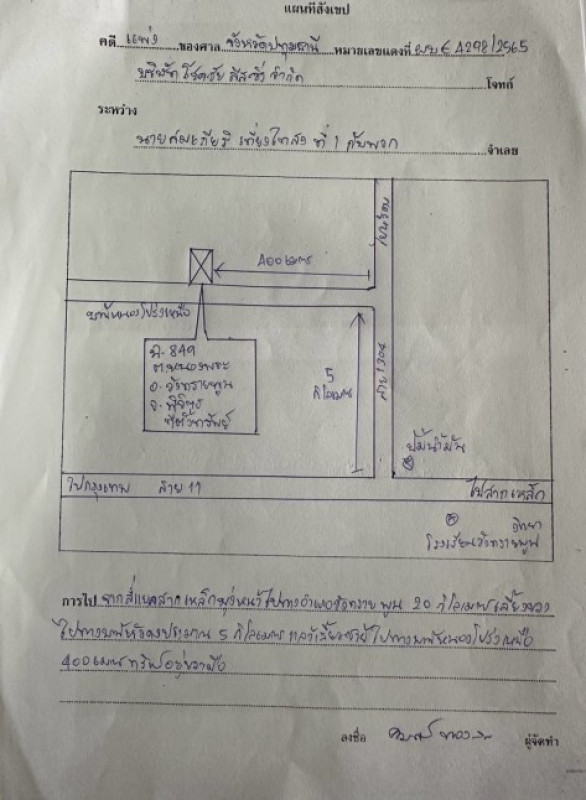 แผนที่สังเขป
คดี แพ่ง ของศาล จังหวัดปทุมธานี หมายเลขแดงที่ ผบE 4298/2565
บริษัท โชคชัย ลีสซิ่ง จำกัด โจทก์
ระหว่าง
นาย ที่ 1 กับพวก จำเลย
400 เมตร
บ้านหนองโปร่งเหนือ
ที่ดิน 849
ต.หนองพระ
อ.วังทรายพูน
จ.พิจิตร
ที่ตั้งทรัพย์
5
กิโลเมตร
สาย 1304
ปั๊มน้ำมัน
ไปกรุงเทพ สาย 11 ไปสากเหล็ก
วิทยา
โรงเรียนวังทรายพูน
การไป จากสี่แยกสากเหล็กมุ่งหน้าไปทางอำเภอวังทรายพูน 20 กิโลเมตร เลี้ยว
ไปทาง ประมาณ 5 กิโลเมตร แล้วเลี้ยวซ้ายไปทางบ้านหนองโปร่งเหนือ
400 เมตร ทรัพย์อยู่ขวามือ
ลงชื่อ ผู้จัดทำ